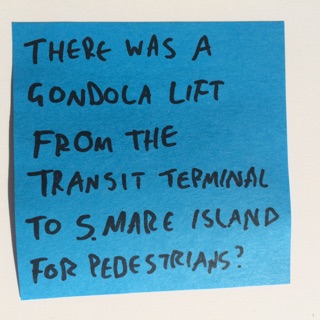 THERE WAS A
GONDOLA LIFT
FROM THE
TRANSIT TERMINAL
TO S. MARE ISLAND
FOR PEDESTRIANS?